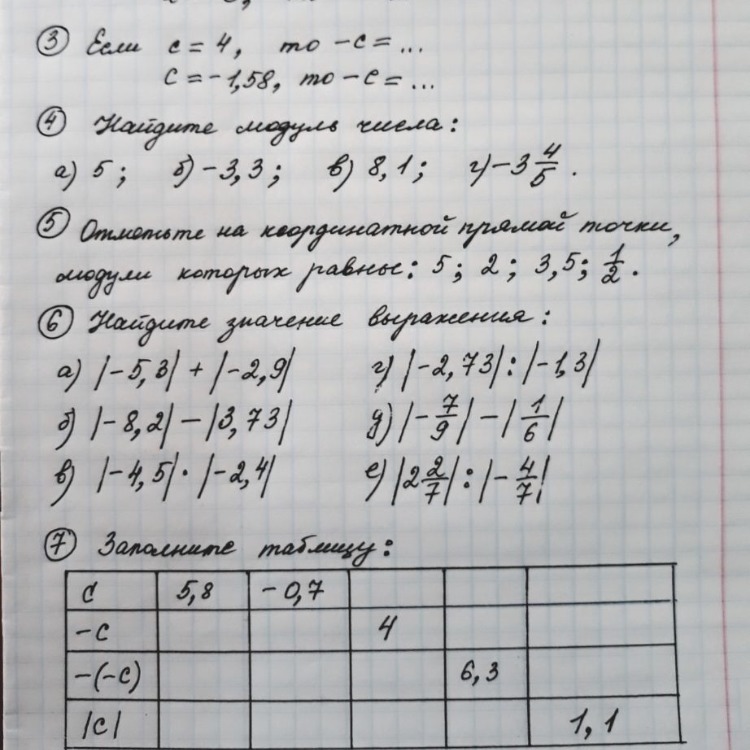 ③ Если с = 4, то -с = ...
С = -1,58, то -с = ...
④ Найдите модуль числа:
а) 5; б) -3,3; в) 8,1; г) -3 4/5.
⑤ Отметьте на координатной прямой точки,
модули которых равны: 5; 2; 3,5; 1/2.
⑥ Найдите значение выражения:
а) |-5,3| + |-2,9| г) |-2,73| : |-1,3|
б) |-8,2| - |3,73| д) |-7/9| - |1/6|
в) |-4,5| · |-2,4| е) |2 2/7| : |-4/7|
⑦ Заполните таблицу:
с 5,8 -0,7
-с 4
-(-с) 6,3
|с| 1,1